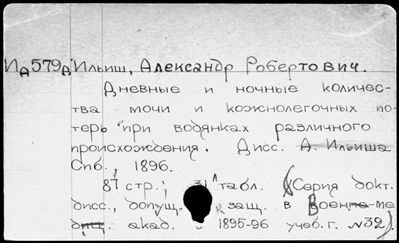 ИА579А Ильиш, Александр Робертович.
Дневные и ночные количес-
тва мочи и кожнолегочных по-
терь при водянках различного
происхождения. Дисс. А. Ильиша
Спб., 1896.
87 стр.; 31 табл. (Серия докт.
дисс., допущ. к защ. в Воен.-ме
акад. в 1895-96 учеб. г. №32).